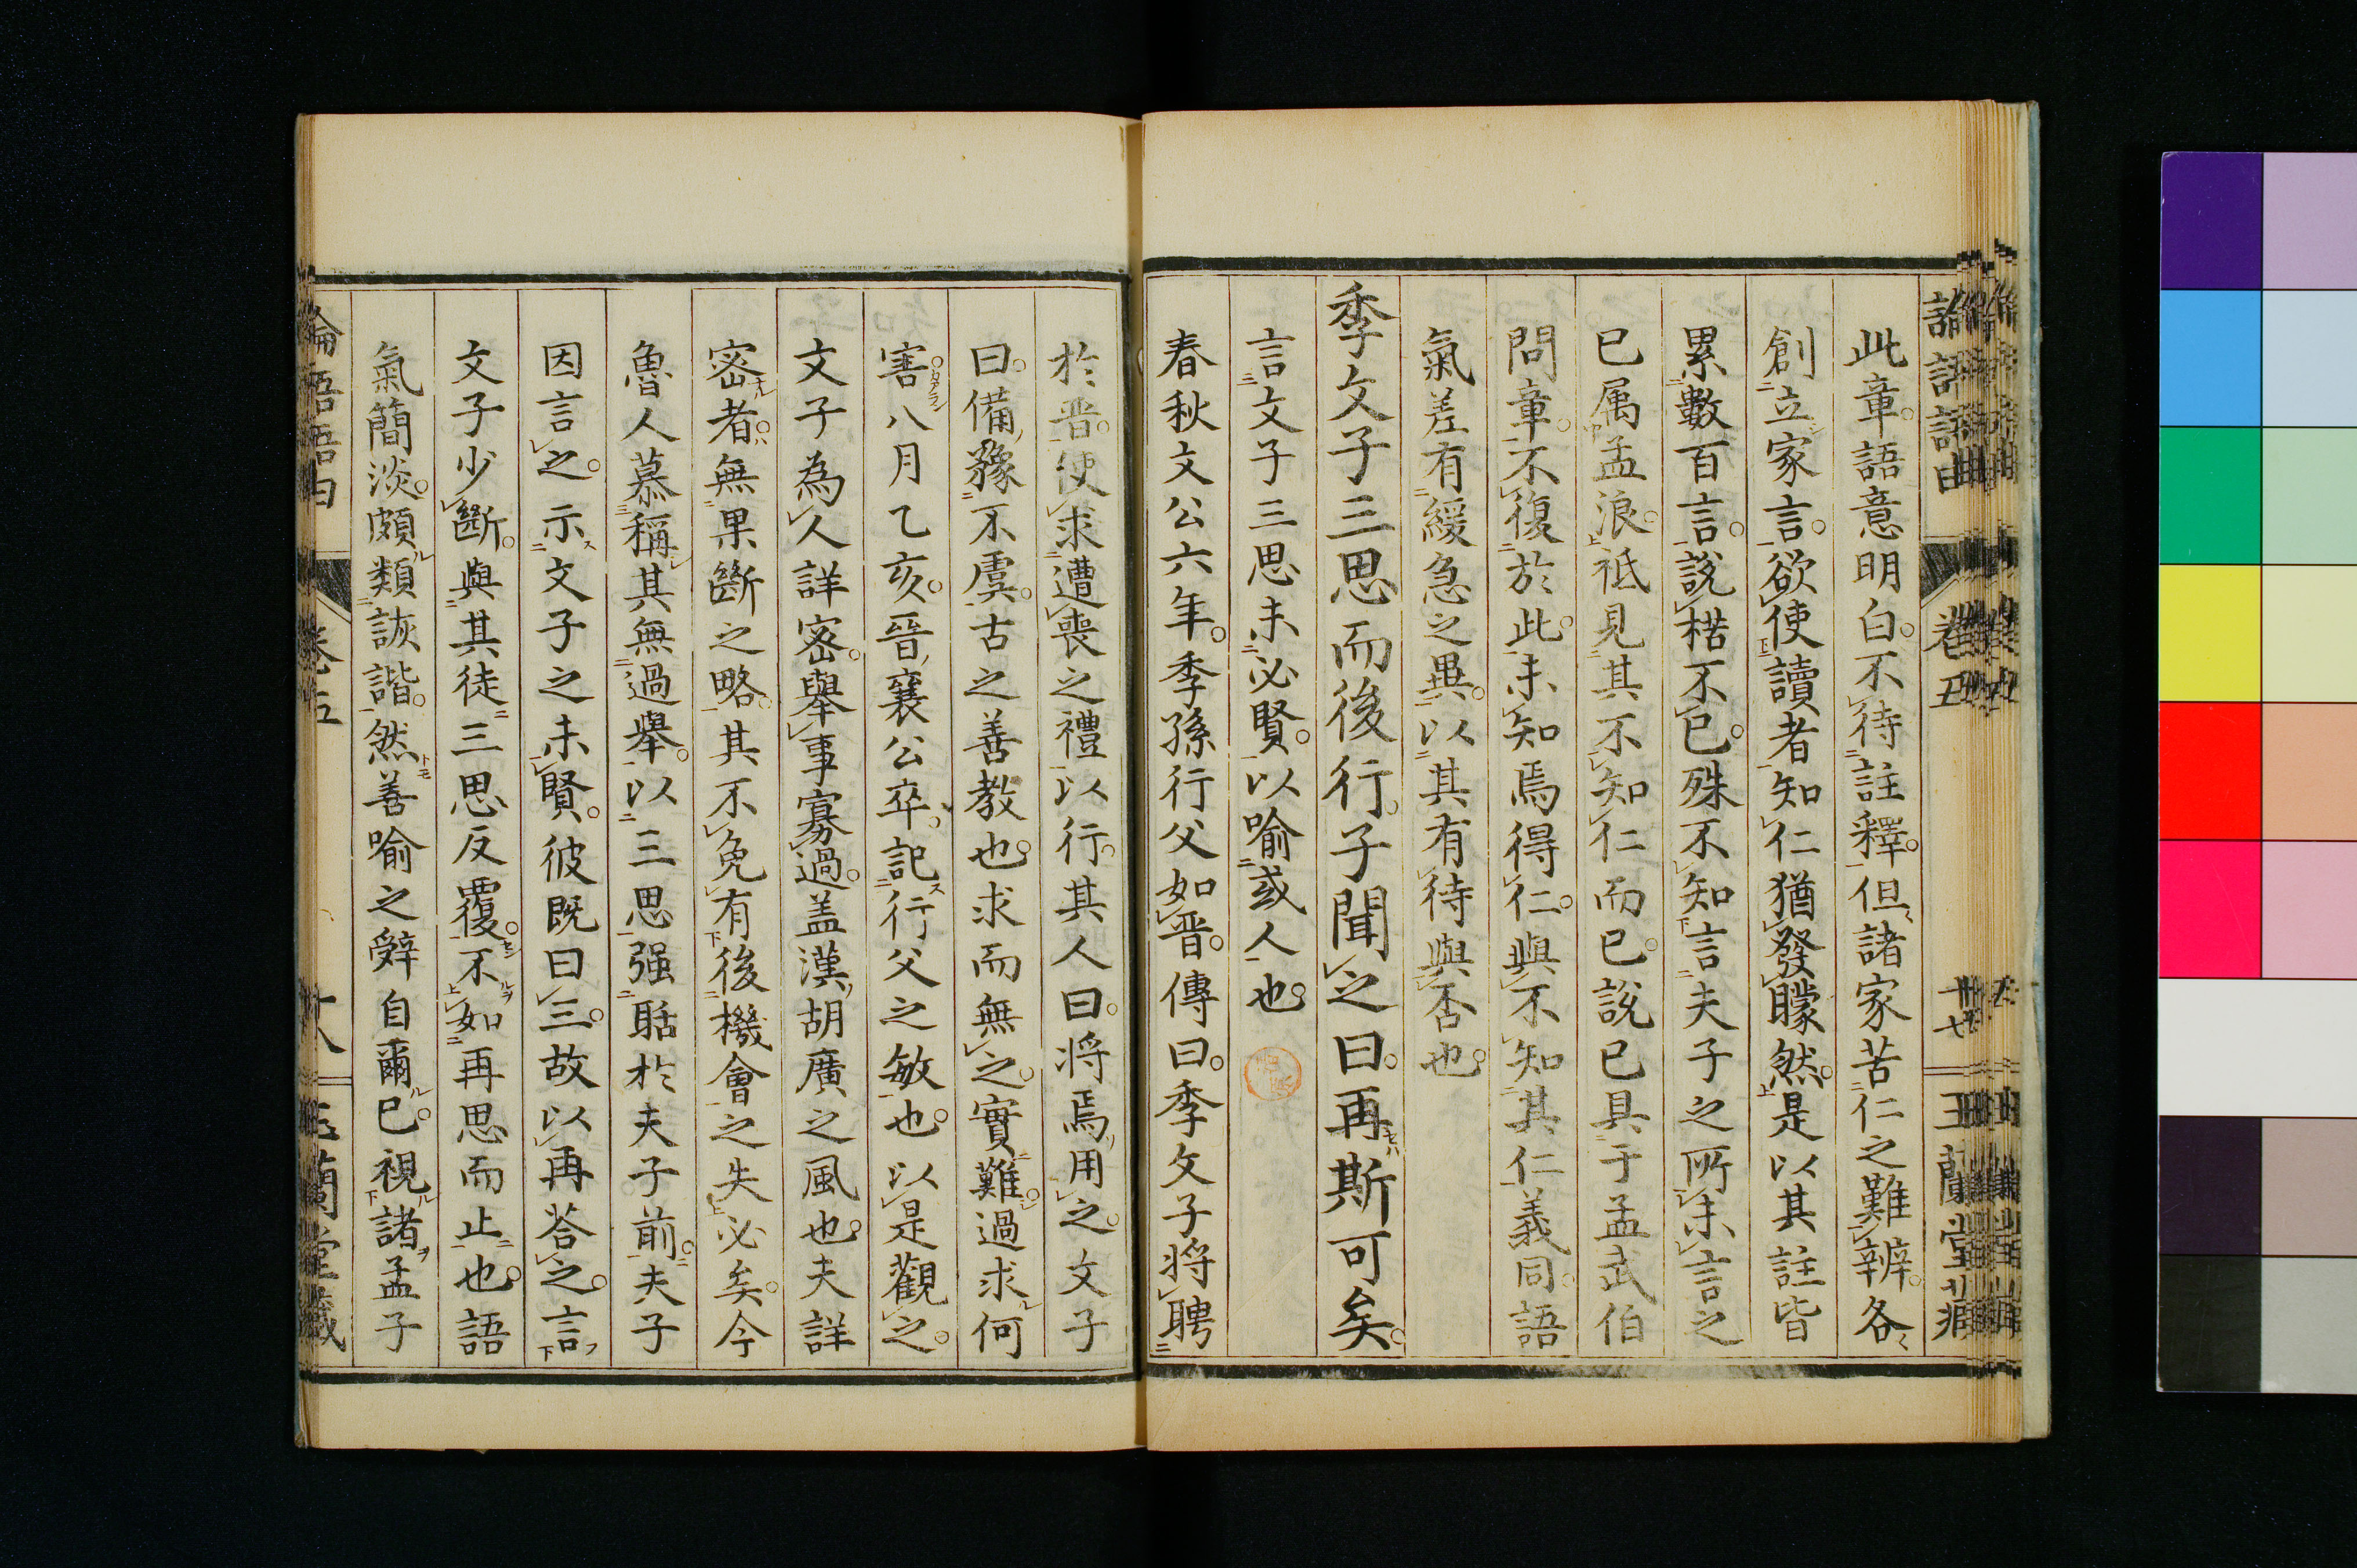 此章語意明白不待註釋但諸家苦仁之難辨各
創立家言欲使讀者知仁猶發矇然是以其註皆
累數百言說楛不已殊不知言夫子之所未言之
已属孟浪祗見其不知仁而已說已具于孟武伯
問章不復於此未知焉得仁與不知其仁義同語
氣差有緩急之異以其有待與否也
季文子三思而後行子聞之曰再斯可矣
言文子三思未必賢以喻或人也
春秋文公六年季孫行父如晋傳曰季文子将聘
於晋使求遭喪之禮以行其人曰将焉用之文子
曰備豫不虞古之善教也求而無之實難過求何
害八月乙亥晉襄公卒記行父之敏也以是觀之
文子為人詳密舉事寡過盖漢胡廣之風也夫詳
密者無果斷之略其不免有後機會之失必矣今
魯人慕稱其無過舉以三思强聒於夫子前夫子
因言之示文子之未賢彼既曰三故以再荅之言
文子少斷與其徒三思反覆不如再思而止也語
氣簡淡頗類詼諧然善喻之辭自爾已視諸孟子
論語語由 卷五 十八 玉蘭堂藏